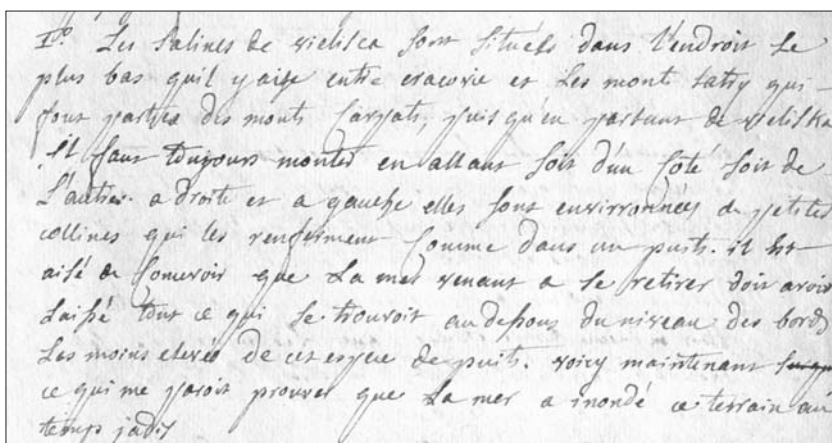 1º. Les Salines de vieliska sont situées dans l'endroit le
plus bas quil y aiye entre cracovie et Les mont tatry qui
font parties des monts Carpats, puis qu'en partant de vieliska
il faut toujours monter en allant soit d'un Coté soit de
L'autre. a droite et a gauche elles sont envirronnées de petites
collines qui les renferment Comme dans un puits. il est
aisé de Concevoir que La mer venant a se retirer doit avoir
Laissé tout ce qui se trouvoit au dessous du niveau des bords
Les moins elevés de cet espece de puits. voicy maintenant
ce qui me paroit prouver que La mer a inondé ce terrain au
temps jadis